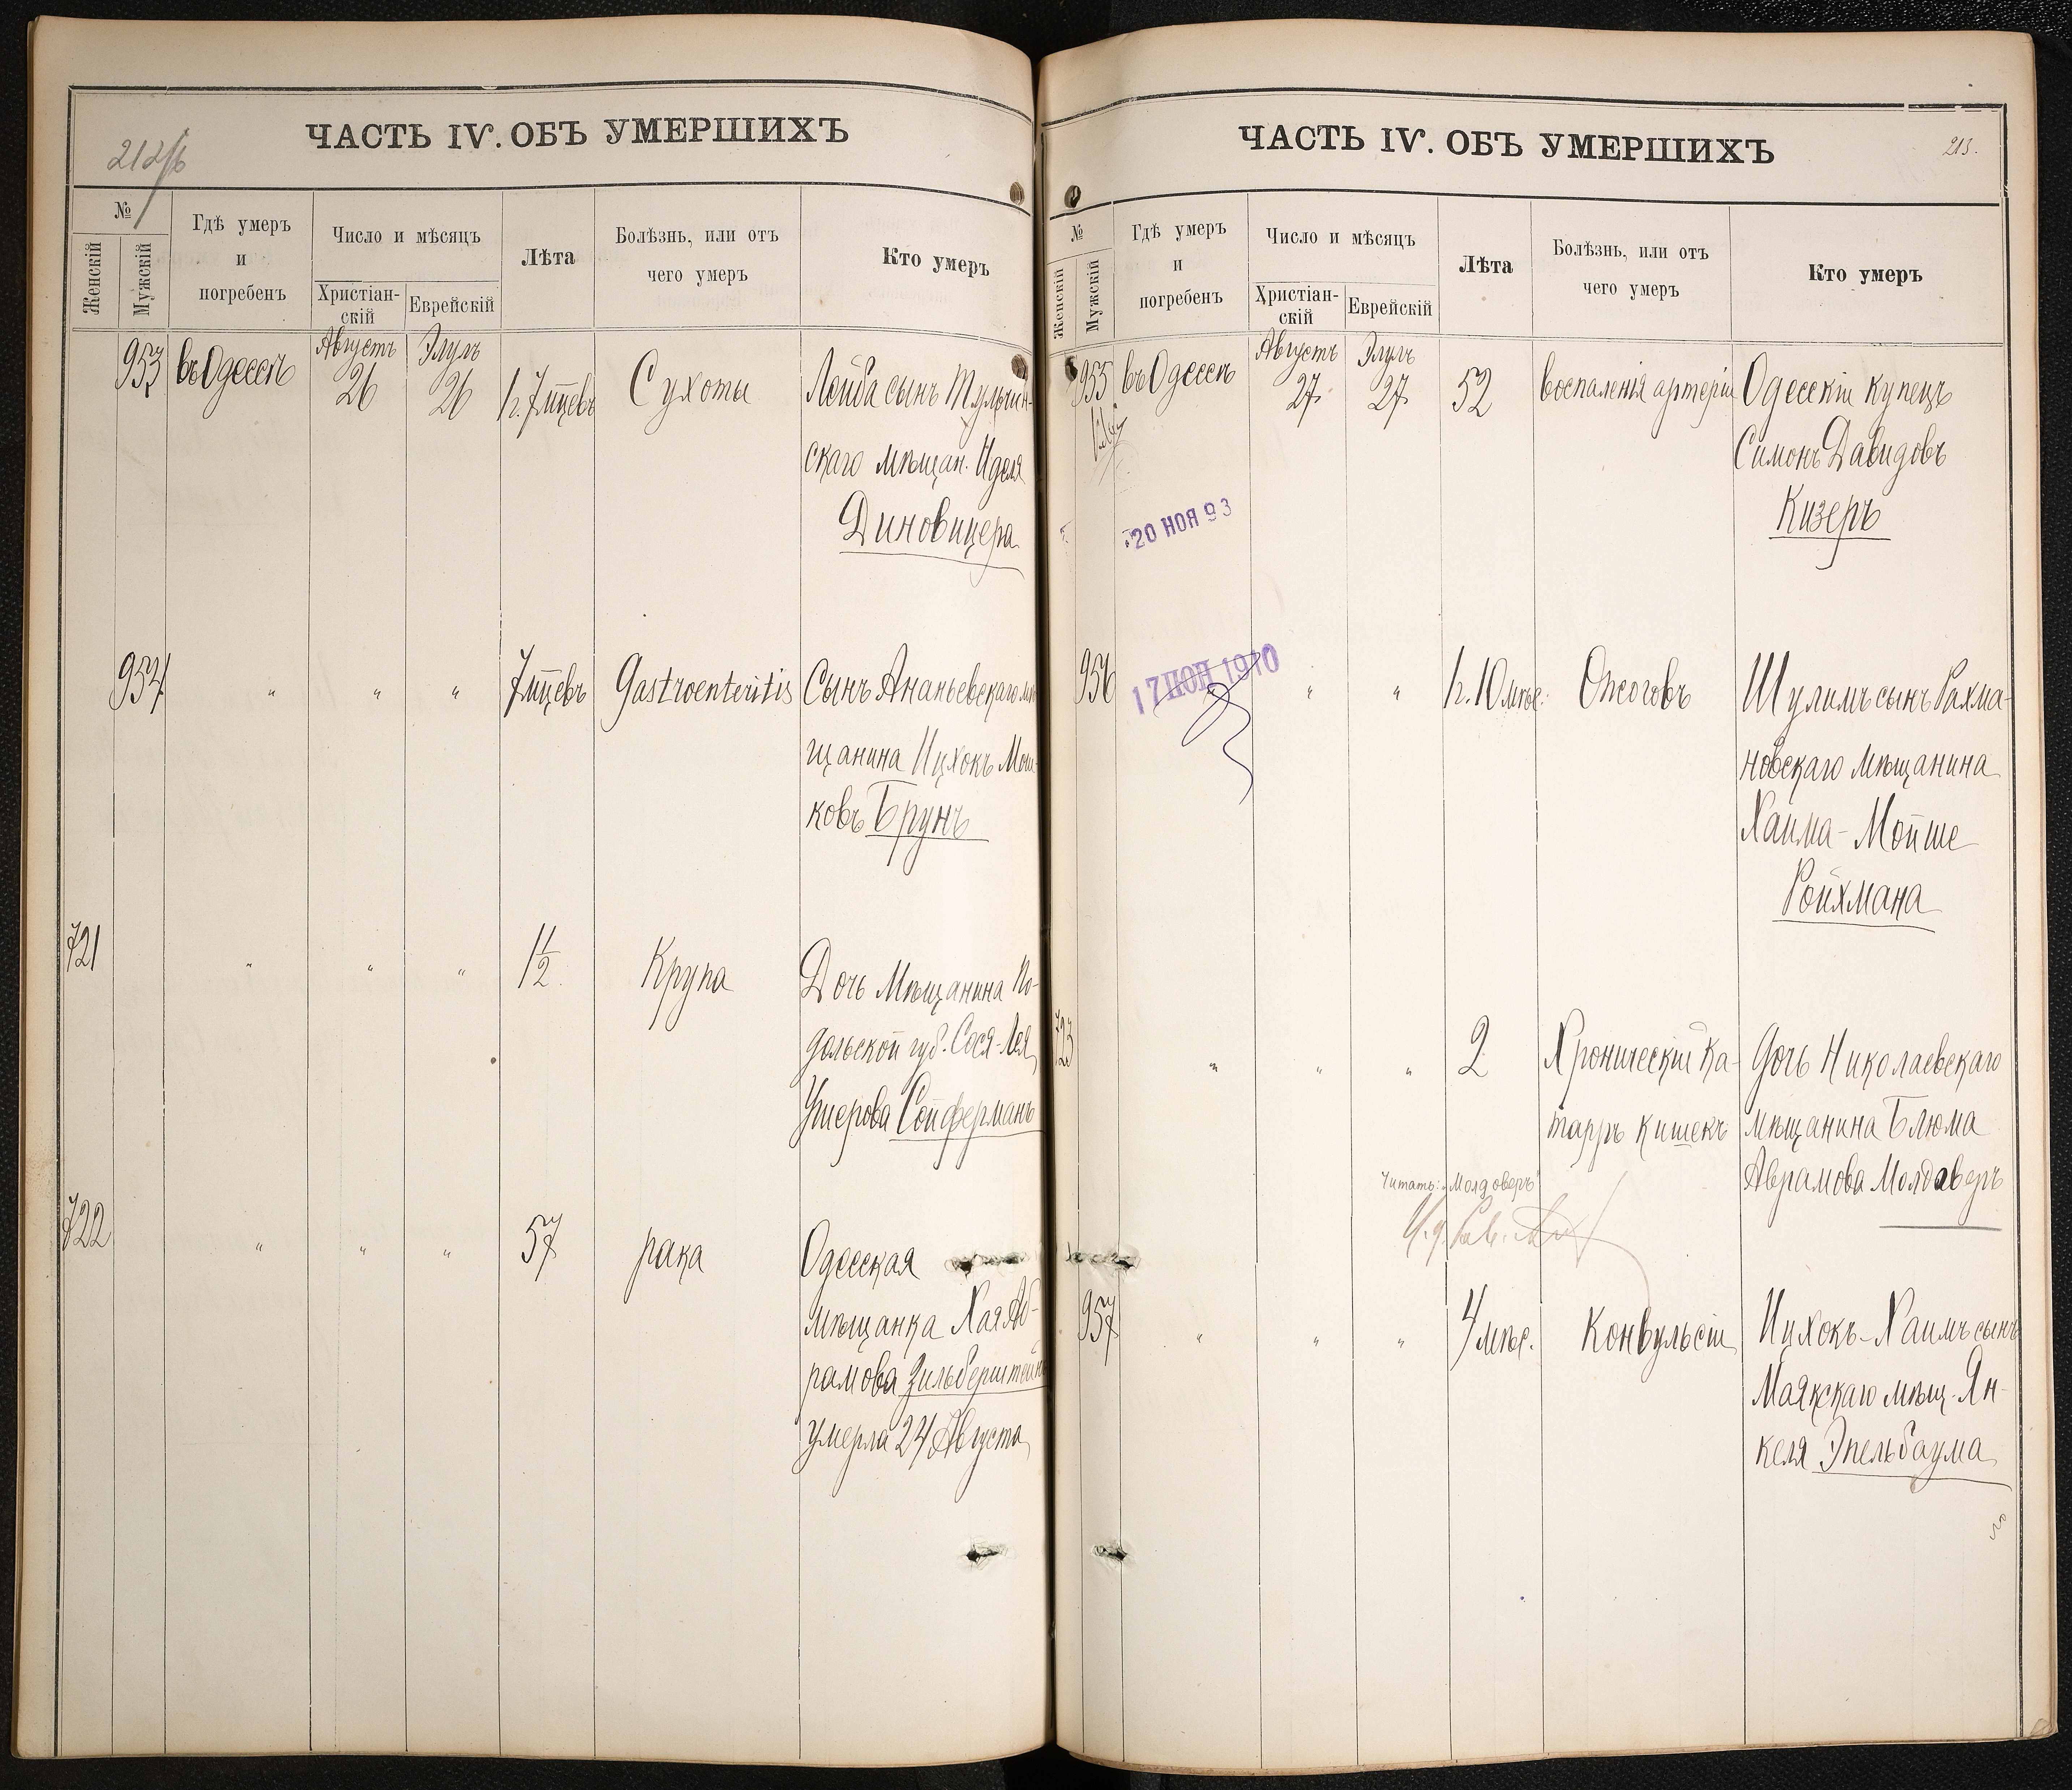 ЧАСТЬ IV. ОБЪ УМЕРШИХЪ
№
Женскій
Мужскій
Гдѣ умеръ
и
погребенъ
Число и мѣсяцъ
Христіан-
скій
Еврейскій
Лѣта
Болѣзнь, или отъ
чего умеръ
Кто умеръ
953 въ Одессѣ Августъ 26 Элулъ 26 7 мцевъ Сухоты Лейба сынъ Тульчин-
скаго мѣщан. Иделя
Диновицера
954 " " " 7 мцевъ Gastroenteritis Сынъ Ананьевскаго мѣ-
щанина Ицхокъ Мош-
ковъ Брунъ
721 " " " 1½ Крупа Дочь Мѣщанина По-
дольской губ. Сося-Лея
Ушерова Сойферманъ
722 " " " 57 рака Одесская
мѣщанка Хая Аб-
рамова Зильберштейнъ
умерла 24 Августа
ЧАСТЬ IV. ОБЪ УМЕРШИХЪ
213.
№
Женскій
Мужскій
Гдѣ умеръ
и
погребенъ
Число и мѣсяцъ
Христіан-
скій
Еврейскій
Лѣта
Болѣзнь, или отъ
чего умеръ
Кто умеръ
955 въ Одессѣ Августъ 27 Элулъ 27 52 воспаленія артеріи Одесскій купецъ
Симонъ Давидовъ
Кизеръ
20 НОЯ 93
956 17 ІЮН 1910 " " 10 мѣс: Ожоговъ Шулимъ сынъ Рахма-
новскаго мѣщанина
Хаима-Мойше
Ройхмана
723 " " " 2 Хроническій ка- Дочь Николаевскаго
тарръ кишекъ мѣщанина Блюма
Аврамова Молдаверъ
Читать: "Молдоверъ"
957 " " " 4 мѣс. Конвульсіи Ицхокъ-Хаимъ сынъ
Маякскаго мѣщ. Ян-
келя Эпельбаума